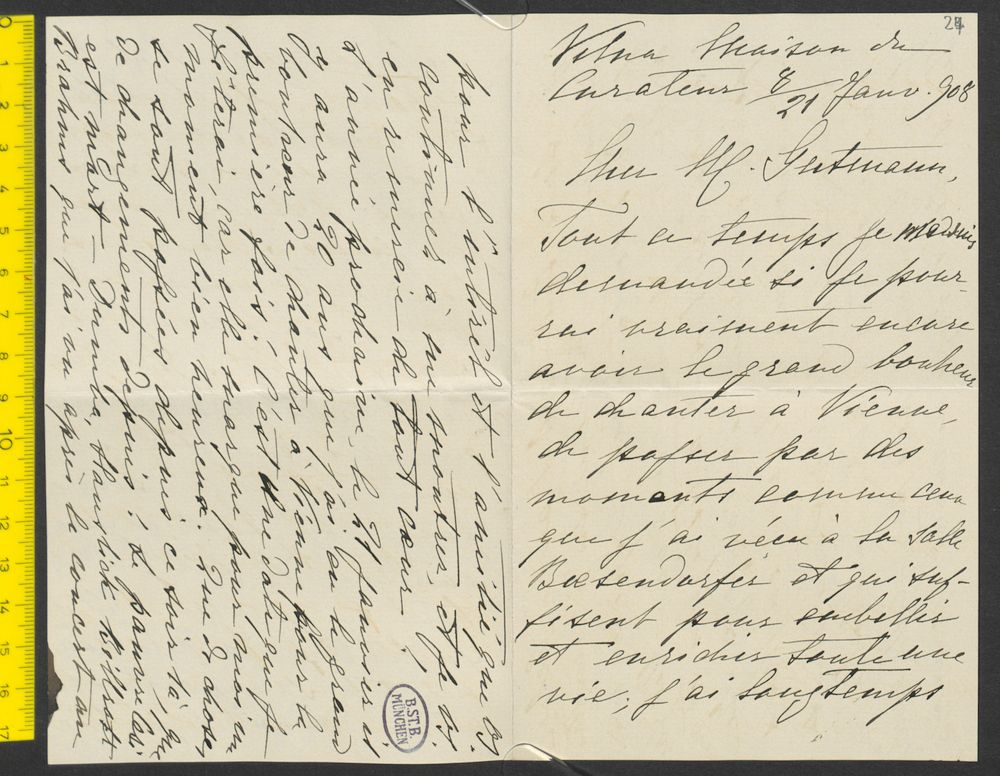 24
Vilna Maison du
Curateur 8/21 Janv. 908
Cher M. Gutmann,
Tout ce temps je me suis
demandée si je pour-
rai vraiment encore
avoir le grand bonheur
de chanter à Vienne,
de passer par des
moments comme ceux
que j'ai vécu à la salle
Boesendorfer et qui suf-
fisent pour embellir
et enrichir toute une
vie; j'ai longtemps
pour l'intérêt et l'amitié que Vs.
continuez à me montrer, et je Vs.
en remercie de tout cœur.
L'année prochaine, le 21 Janvier il
y aura 20 ans que j'ai eu le grand
bonheur de chanter à Vienne pour la
première fois! C'est une date que je
fêterai, car elle marque pour moi un
moment bien heureux. Que de choses
se sont passées depuis ce soir là, que
de changements depuis! Le pauvre
est mort – Dumba, Hanslick
Brahms que j'ai vu après le concert au
B.ST.B.
MÜNCHEN
0
1
2
3
4
5
6
7
8
9
10
11
12
13
14
15
16
17